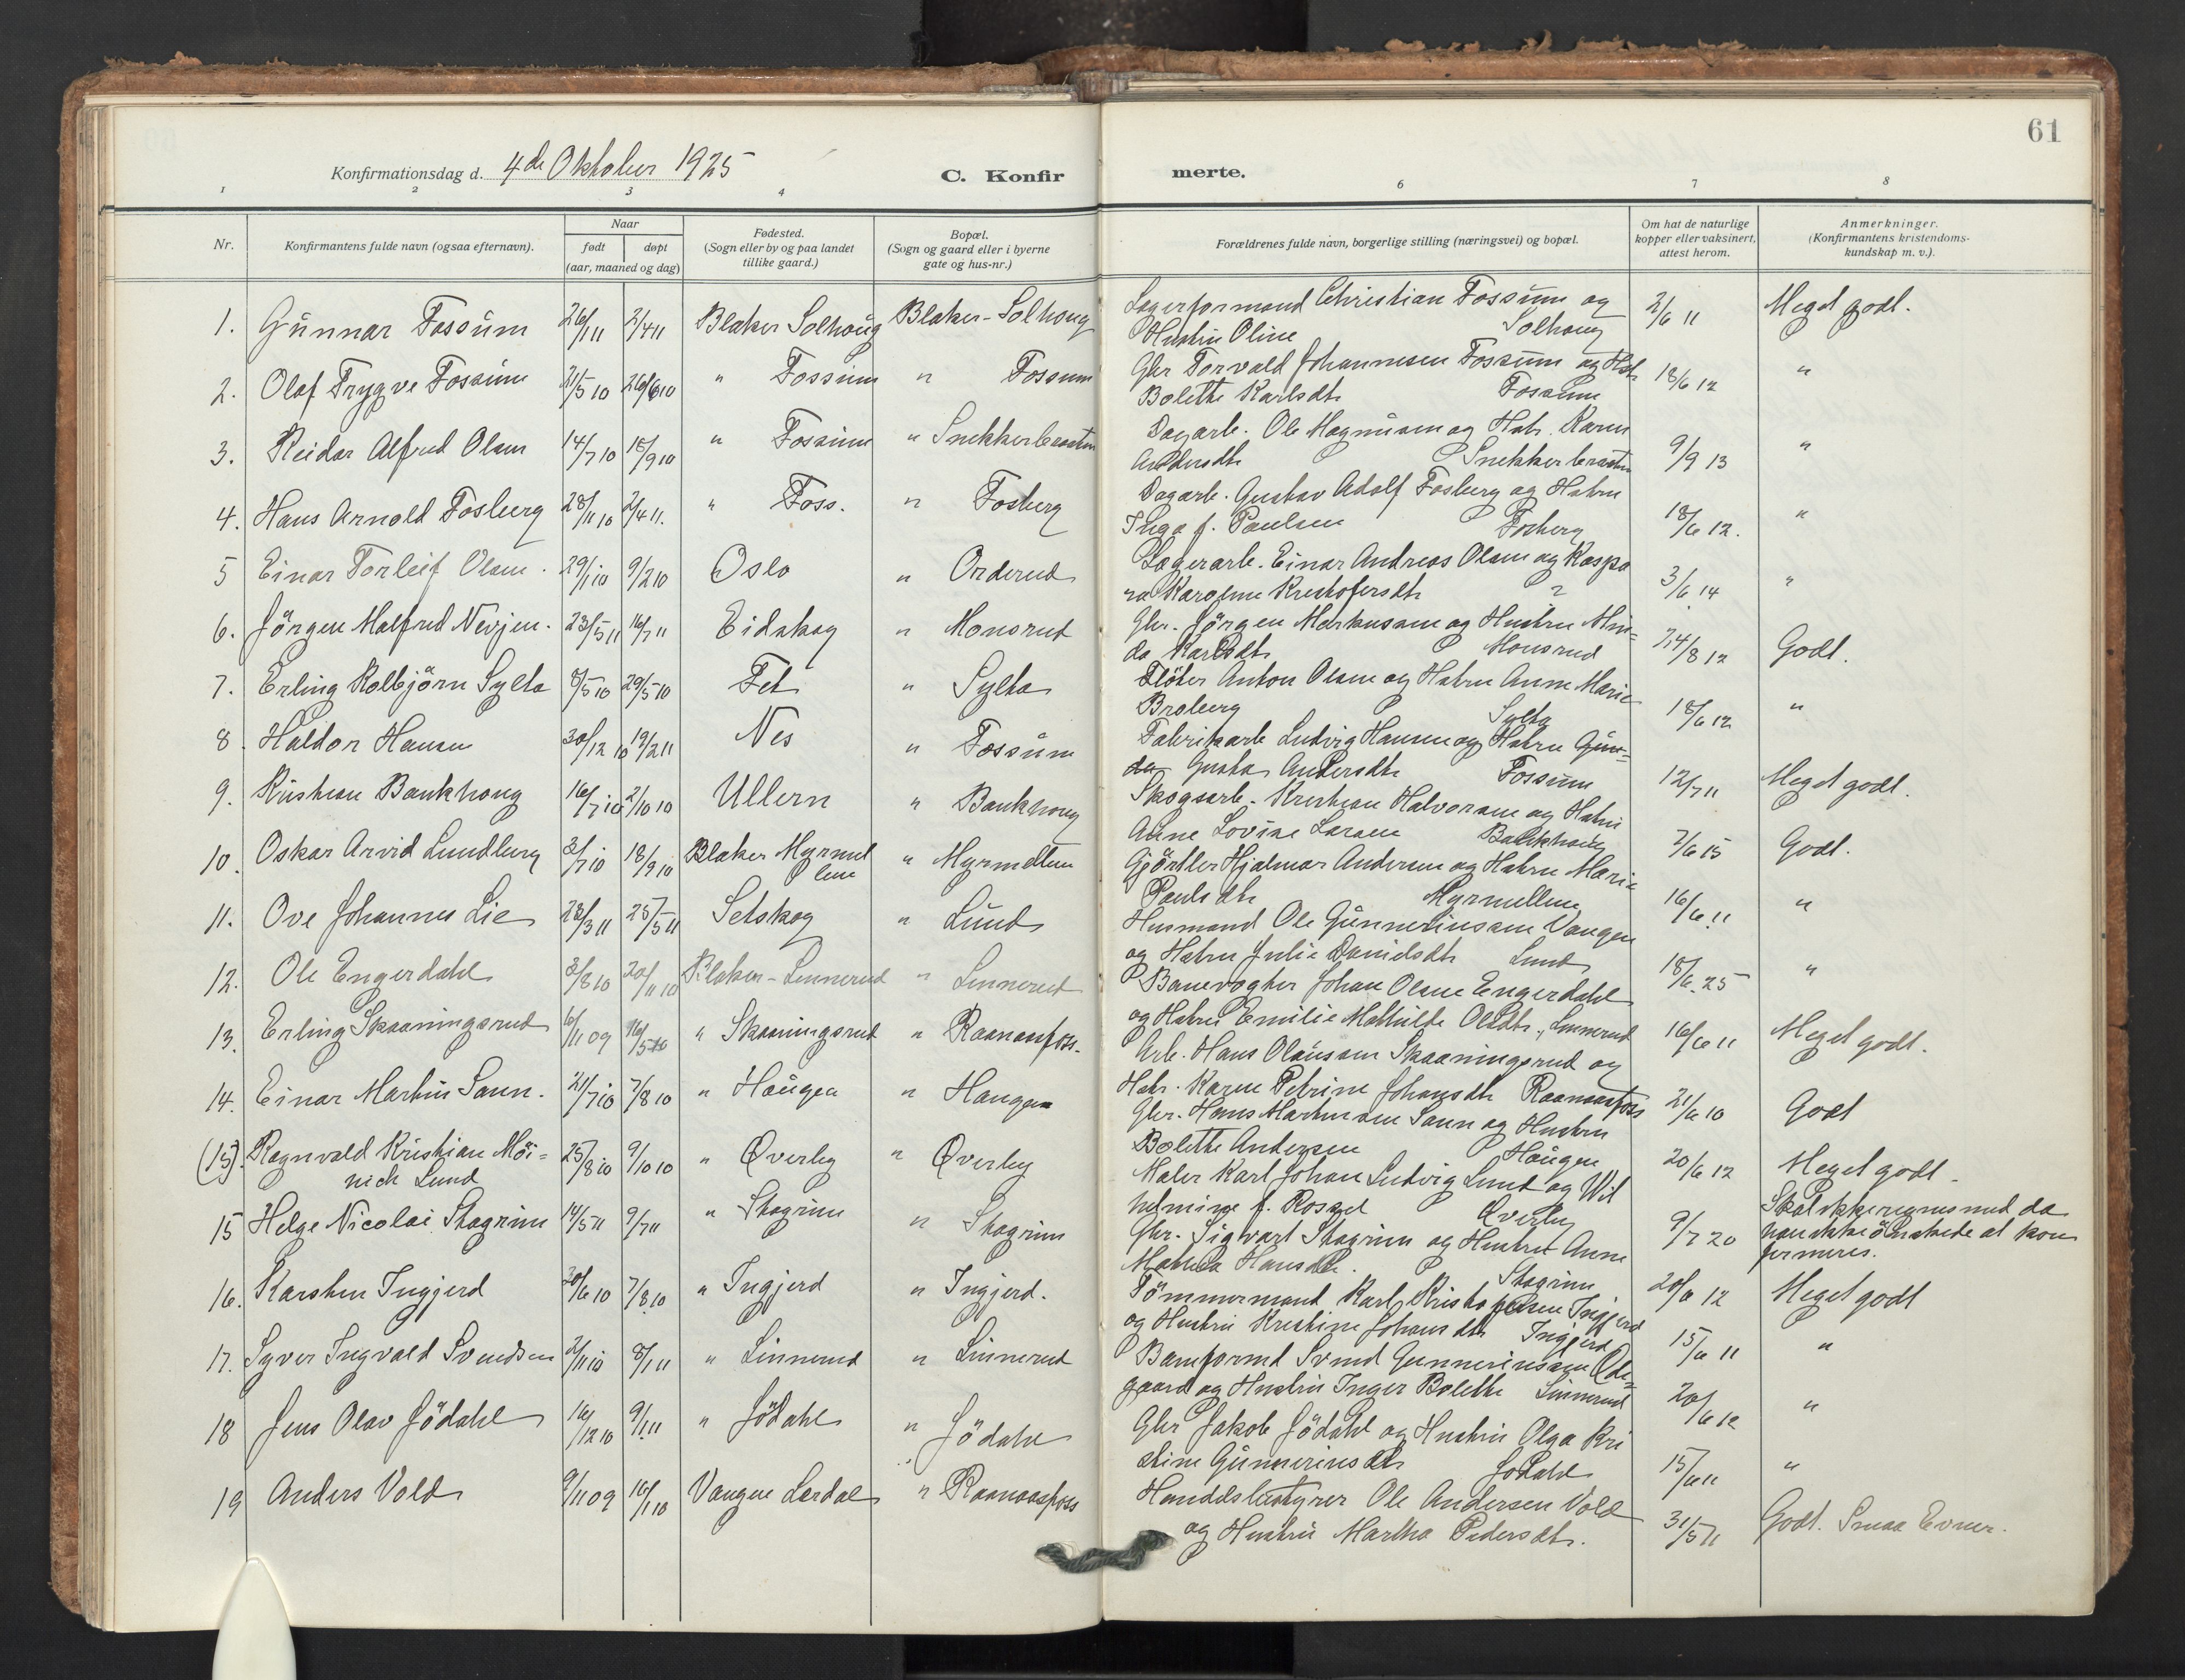 61
Konfirmationsdag d. 4de Oktober 1925 C. Konfir merte.
1 2 3 4 6 7 8
Nr. Konfirmantens fulde navn (ogsaa efternavn). Naar født døpt (aar, maaned og dag) Fødested. (Sogn eller by og paa landet tillike gaard.) Bopæl. (Sogn og gaard eller i byerne gate og hus-nr.) Forældrenes fulde navn, borgerlige stilling (næringsvei) og bopæl. Om hat de naturlige kopper eller vaksinert, attest herom. Anmerkninger. (Konfirmantens kristendomskundskap m. v.).
1. Gunnar Fossum 26/1 11 2/4 11 Blaker Solhoug Blaker-Solhoug Lagerformand Christian Fossum og 2/6 11 Meget godt.
Hustru Oline Solhoug
2. Olaf Trygve Fossum 21/5 10 26/6 10 " Fossum " Fossum Gbr Torvald Johannesen Fossum og Hstr 18/6 12 "
Bolette Karlsdtr Fossum
3. Reidar Alfred Olsen 14/7 10 18/9 10 " Fossum " Snekkerbraaten Dagarb. Ole Magnusen og Hstr. Karen 9/9 13 "
Andersdtr Snekkerbraaten
4. Hans Arnold Fosberg 28/11 10 2/4 11. " Foss. " Fosberg Dagarb. Gustav Adolf Fosberg og Hstru 18/6 12. "
Inga f. Paulsen Fosberg
5 Einar Torleif Olsen. 29/1 10 9/2 10 Oslo " Orderud Lagerarb. Einar Andreas Olsen og Kaspa 3/6 14 "
ra Karoline Kristofersdtr ?
6. Jörgen Malfred Nevjen. 23/5 11 16/7 11 Eidskog " Monsrud Gbr. Jörgen Markussen og Hustru Min= 14/8 12 Godt.
da Karlsdtr Monsrud
7. Erling Kolbjörn Sylta 8/5 10 29/5 10 Fet " Sylta Flöter Anton Olsen og Hstru Anne Marie 18/6 12 "
Broberg Sylta
8. Haldor Hansen 30/12 10 19/2 11 Nes " Fossum Fabrikarb Ludvig Hansen og Hstru Gun= 12/7 11 Meget godt.
da Gusta Andersdtr Fossum
9. Kristian Baukhoug 16/7 10 2/10 10 Ullern " Baukhoug Skogsarb. Kristian Halvorsen og Hstru 2/6 15 Godt.
Anne Lovise Larsen Baukhoug
10. Oskar Arvid Lundberg 3/7 10 18/9 10 Blaker Myrmel len " Myrmellen Gjörtler Hjalmar Andersen og Hstru Marie 16/6 11 "
Paulsdtr Myrmellen
11. Ove Johannes Lie 28/3 11 25/5 11 Setskog " Lund Husmand Ole Gunneriussen Vangen 18/6 25 "
og Hstru Julie Danielsdtr Lund
12. Ole Engerdahl 3/8 10 20/11 10 Blaker-Linnerud " Linnerud Banevogter Johan Olsen Engerdahl 16/6 11 Meget godt.
og Hstru Emilie Mathilde Olsdtr., Linnerud
13. Erling Skaaningsrud 6/11 09 16/5 10 " Skaaningsrud " Raanaasfoss. Arb. Hans Olaussen Skaaningsrud og 21/6 10 Godt
Hstr. Karen Petrine Johansdtr Raanaasfoss
14. Einar Martin Saun. 21/7 10 7/8 10 " Haugen " Haugen Gbr. Hans Martinsen Saun og Hustru 20/6 12 Meget godt.
Bolette Andersen Haugen
(15). Ragnvald Kristian Möi= 25/8 10 9/10 10 " Överby " Överby Maler Karl Johan Ludvig Lund og Wil 9/7 20 Skal ikke regnes med da
nich Lund helmine f. Rossel Överby han ikke önskede at kon
firmeres.
15 Helge Nicolai Stagrim 14/5 11 9/7 11 " Stagrim " Stagrim Gbr. Sigvart Stagrim og Hustru Anne 20/6 12 Meget godt
Mathea Hansdtr. Stagrim
16. Karsten Ingjerd 20/6 10 7/8 10 " Ingjerd " Ingjerd. Tömmermand Karl Kristofersen Ingjerd 15/6 11 "
og Hustru Kristine Johansdtr Ingjerd
17. Syver Ingvald Svendsen 2/11 10 8/1 11 " Linnerud " Linnerud Baneformd Svend Gunneriussen Öde= 20/6 12 "
gaard og Hustru Inger Bolette Linnerud
18 Jens Olav Jödahl 16/12 10 9/1 11 " Jödahl " Jödahl Gbr Jakob Jödahl og Hustru Olga Kri 15/6 11 "
stine Gunneriusdtr Jödahl
19 Anders Vold 9/11 09 16/1 10 Vangen Lerdal " Raanaasfoss Handelsbestyrer Ole Andersen Vold 31/5 11 Godt. Smaa Evner.
og Hustru Martha Pedersdtr.